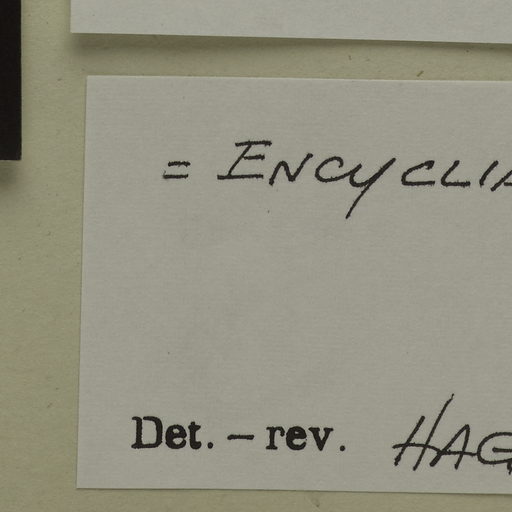 = ENCYCLIA
Det. – rev. HAG